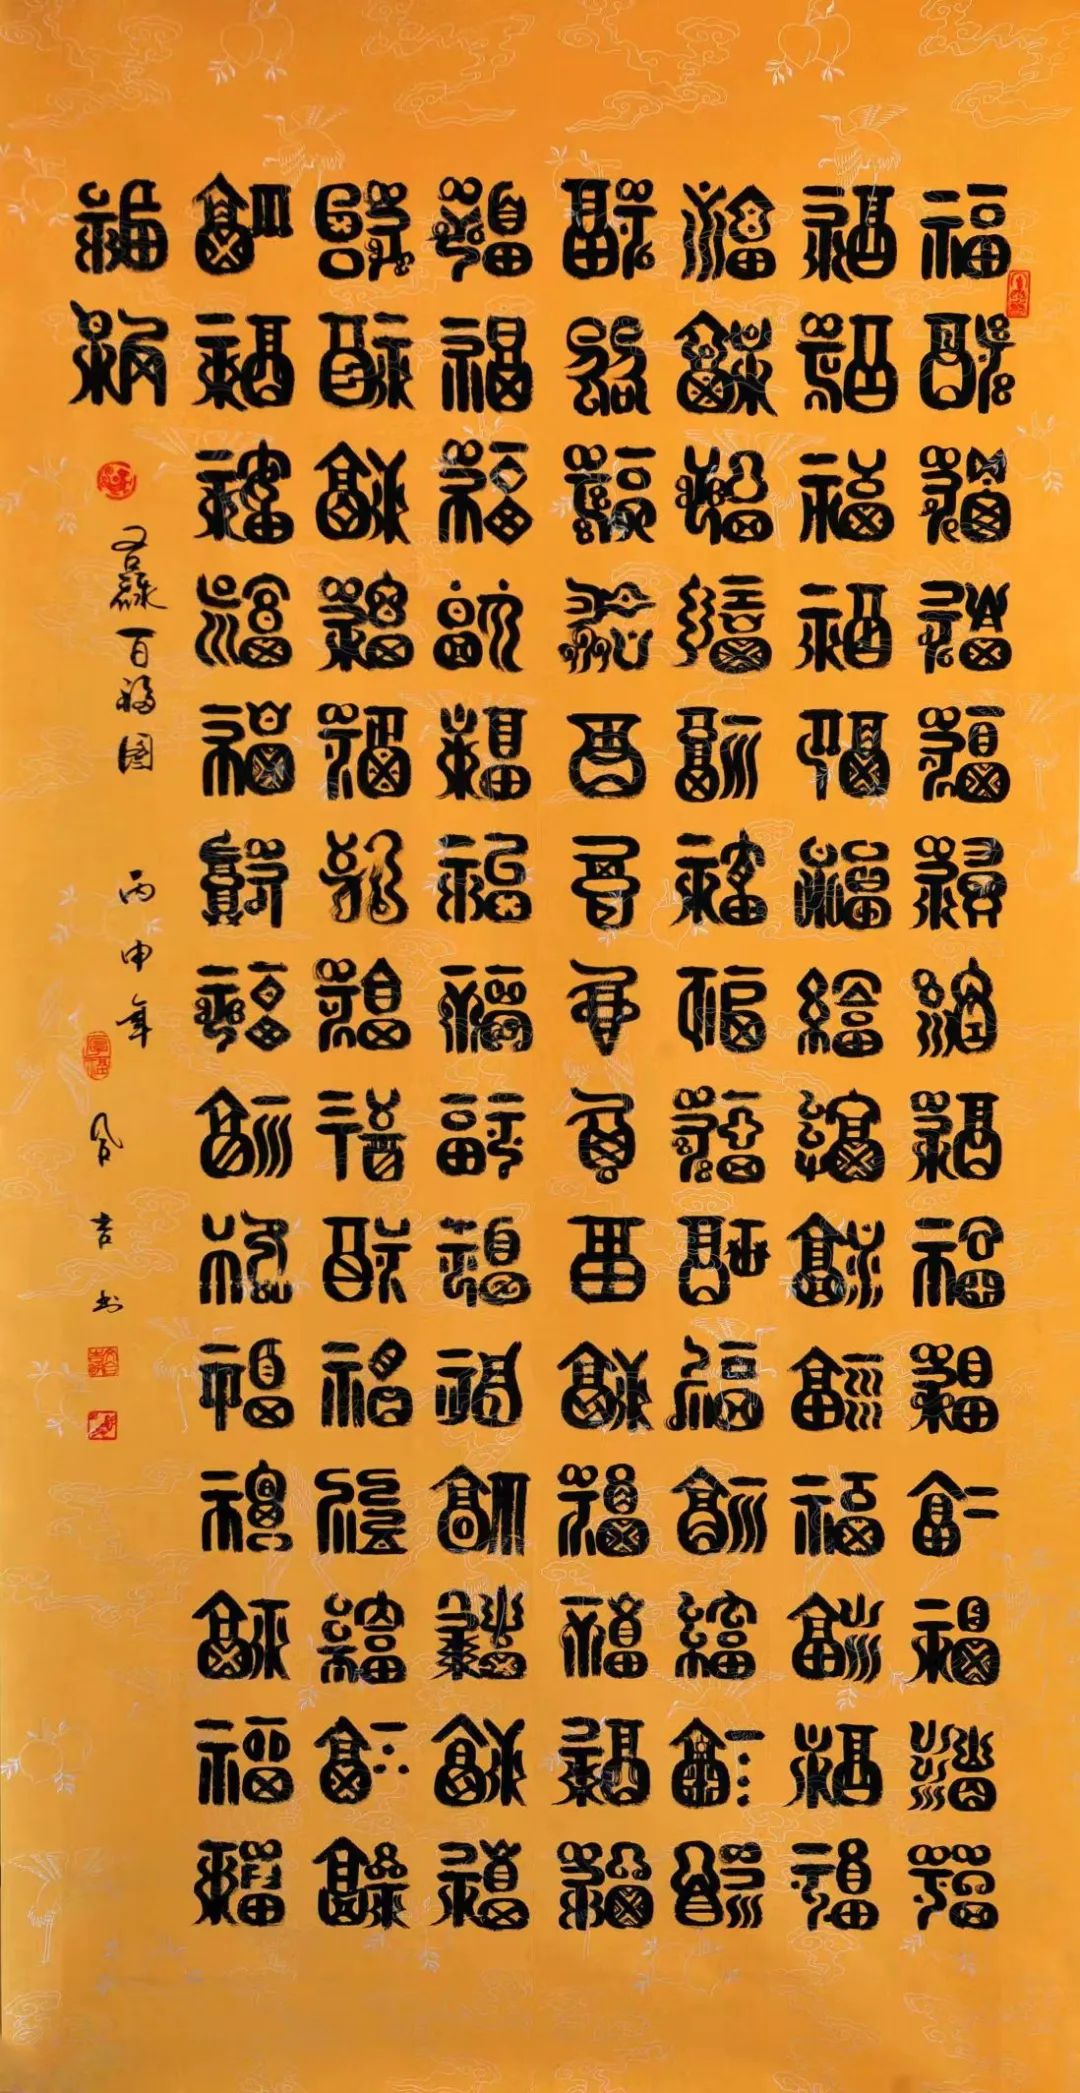 福福福福福福福福福福福福福福
福福福福福福福福福福福福福福
福福福福福福福福福福福福福福
福福福福福福福福福福福福福福
福福福福福福福福福福福福福福
福福福福福福福福福福福福福福
福福福福福福福福福福福福福福
福福
百福图 丙申年 吉书